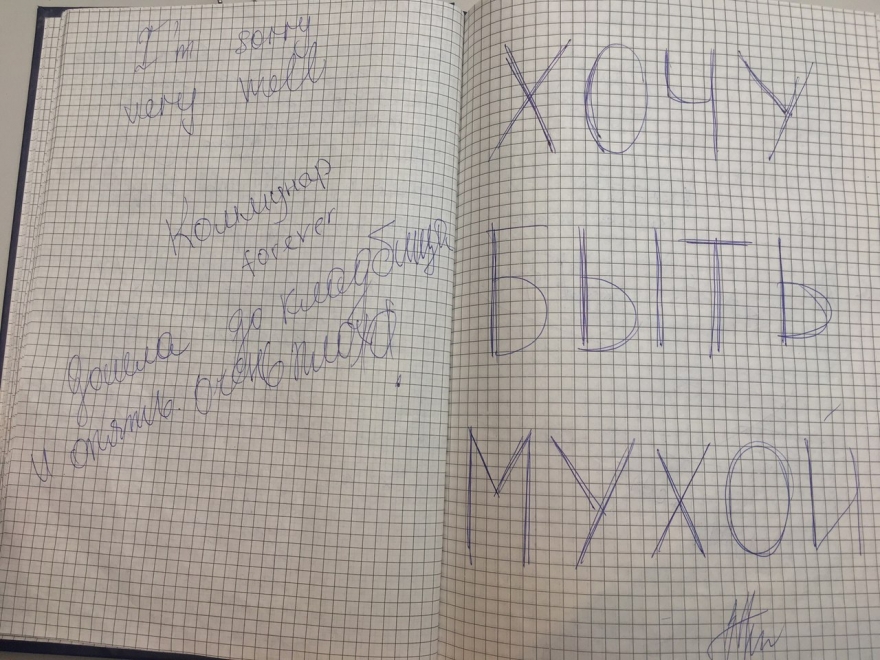 I'm sorry
very well
Коммунар
forever
дошла до кладбища
и опять. очень плохо!
ХОЧУ
БЫТЬ
МУХОЙ